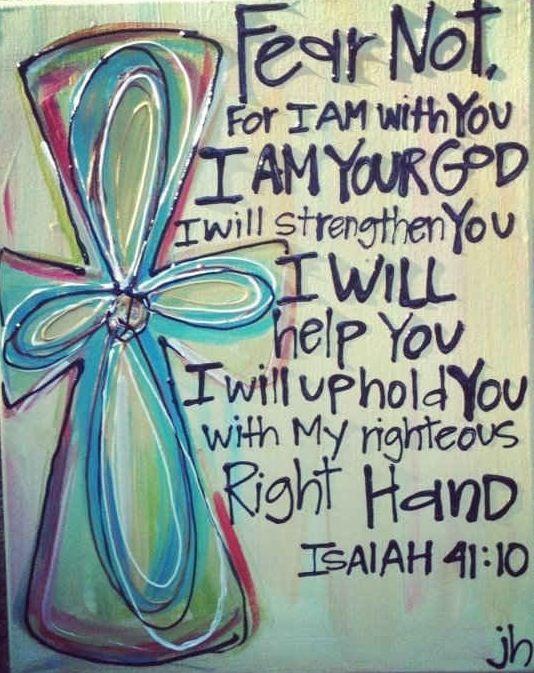 Fear Not,
For I AM with You
I AM YOUR GOD
I will strengthen You
I WILL
help You
I will uphold You
with My righteous
Right Hand
ISAIAH 41:10
jh